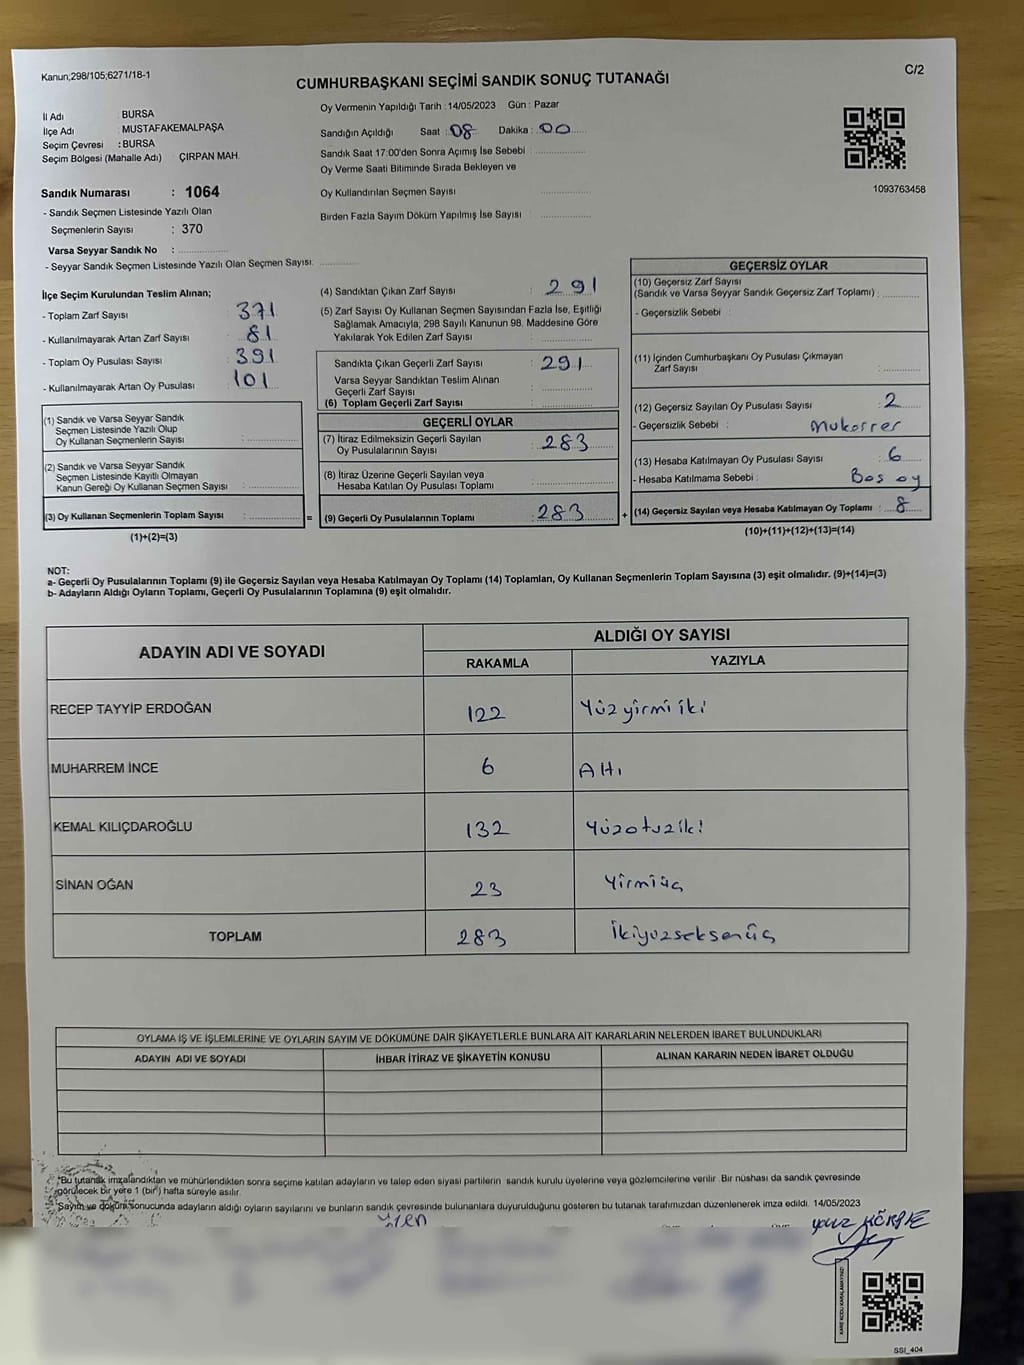 Kanun;298/105;6271/18-1
C/2
CUMHURBAŞKANI SEÇİMİ SANDIK SONUÇ TUTANAĞI
İl Adı : BURSA
İlçe Adı : MUSTAFAKEMALPAŞA
Seçim Çevresi : BURSA
Seçim Bölgesi (Mahalle Adı) : ÇIRPAN MAH.
Sandık Numarası : 1064
- Sandık Seçmen Listesinde Yazılı Olan
Seçmenlerin Sayısı : 370
Varsa Seyyar Sandık No :
- Seyyar Sandık Seçmen Listesinde Yazılı Olan Seçmen Sayısı:
Oy Vermenin Yapıldığı Tarih : 14/05/2023 Gün : Pazar
Sandığın Açıldığı Saat : 08 Dakika : 00
Sandık Saat 17:00'den Sonra Açımış İse Sebebi :
Oy Verme Saati Bitiminde Sırada Bekleyen ve
Oy Kullandırılan Seçmen Sayısı
Birden Fazla Sayım Döküm Yapılmış İse Sayısı :
1093763458
İlçe Seçim Kurulundan Teslim Alınan;
- Toplam Zarf Sayısı : 371
- Kullanılmayarak Artan Zarf Sayısı : 81
- Toplam Oy Pusulası Sayısı : 391
- Kullanılmayarak Artan Oy Pusulası : 101
(1) Sandık ve Varsa Seyyar Sandık
Seçmen Listesinde Yazılı Olup
Oy Kullanan Seçmenlerin Sayısı :
(2) Sandık ve Varsa Seyyar Sandık
Seçmen Listesinde Kayıtlı Olmayan
Kanun Gereği Oy Kullanan Seçmen Sayısı :
(3) Oy Kullanan Seçmenlerin Toplam Sayısı :
(1)+(2)=(3)
(4) Sandıktan Çıkan Zarf Sayısı : 291
(5) Zarf Sayısı Oy Kullanan Seçmen Sayısından Fazla İse, Eşitliği
Sağlamak Amacıyla, 298 Sayılı Kanunun 98. Maddesine Göre
Yakılarak Yok Edilen Zarf Sayısı :
Sandıkta Çıkan Geçerli Zarf Sayısı : 291
Varsa Seyyar Sandıktan Teslim Alınan
Geçerli Zarf Sayısı :
(6) Toplam Geçerli Zarf Sayısı :
GEÇERLİ OYLAR
(7) İtiraz Edilmeksizin Geçerli Sayılan
Oy Pusulalarının Sayısı : 283
(8) İtiraz Üzerine Geçerli Sayılan veya
Hesaba Katılan Oy Pusulası Toplamı :
= (9) Geçerli Oy Pusulalarının Toplamı : 283 +
GEÇERSİZ OYLAR
(10) Geçersiz Zarf Sayısı
(Sandık ve Varsa Seyyar Sandık Geçersiz Zarf Toplamı) :
- Geçersizlik Sebebi :
(11) İçinden Cumhurbaşkanı Oy Pusulası Çıkmayan
Zarf Sayısı :
(12) Geçersiz Sayılan Oy Pusulası Sayısı : 2
- Geçersizlik Sebebi : Mukerrer
(13) Hesaba Katılmayan Oy Pusulası Sayısı : 6
- Hesaba Katılmama Sebebi : Bos oy
(14) Geçersiz Sayılan veya Hesaba Katılmayan Oy Toplamı : 8
(10)+(11)+(12)+(13)=(14)
NOT:
a- Geçerli Oy Pusulalarının Toplamı (9) ile Geçersiz Sayılan veya Hesaba Katılmayan Oy Toplamı (14) Toplamları, Oy Kullanan Seçmenlerin Toplam Sayısına (3) eşit olmalıdır. (9)+(14)=(3)
b- Adayların Aldığı Oyların Toplamı, Geçerli Oy Pusulalarının Toplamına (9) eşit olmalıdır.
ADAYIN ADI VE SOYADI
ALDIĞI OY SAYISI
RAKAMLA YAZIYLA
RECEP TAYYİP ERDOĞAN 122 Yüzyirmiiki
MUHARREM İNCE 6 Altı
KEMAL KILIÇDAROĞLU 132 Yüzotuziki
SİNAN OĞAN 23 Yirmiüç
TOPLAM 283 İkiyüzseksenüç
OYLAMA İŞ VE İŞLEMLERİNE VE OYLARIN SAYIM VE DÖKÜMÜNE DAİR ŞİKAYETLERLE BUNLARA AİT KARARLARIN NELERDEN İBARET BULUNDUKLARI
ADAYIN ADI VE SOYADI İHBAR İTİRAZ VE ŞİKAYETİN KONUSU ALINAN KARARIN NEDEN İBARET OLDUĞU
"Bu tutanak imzalandıktan ve mühürlendikten sonra seçime katılan adayların ve talep eden siyasi partilerin sandık kurulu üyelerine veya gözlemcilerine verilir. Bir nüshası da sandık çevresinde
görülecek bir yere 1 (bir) hafta süreyle asılır.
Sayım ve döküm sonucunda adayların aldığı oyların sayılarını ve bunların sandık çevresinde bulunanlara duyurulduğunu gösteren bu tutanak tarafımızdan düzenlenerek imza edildi. 14/05/2023
SSI_404